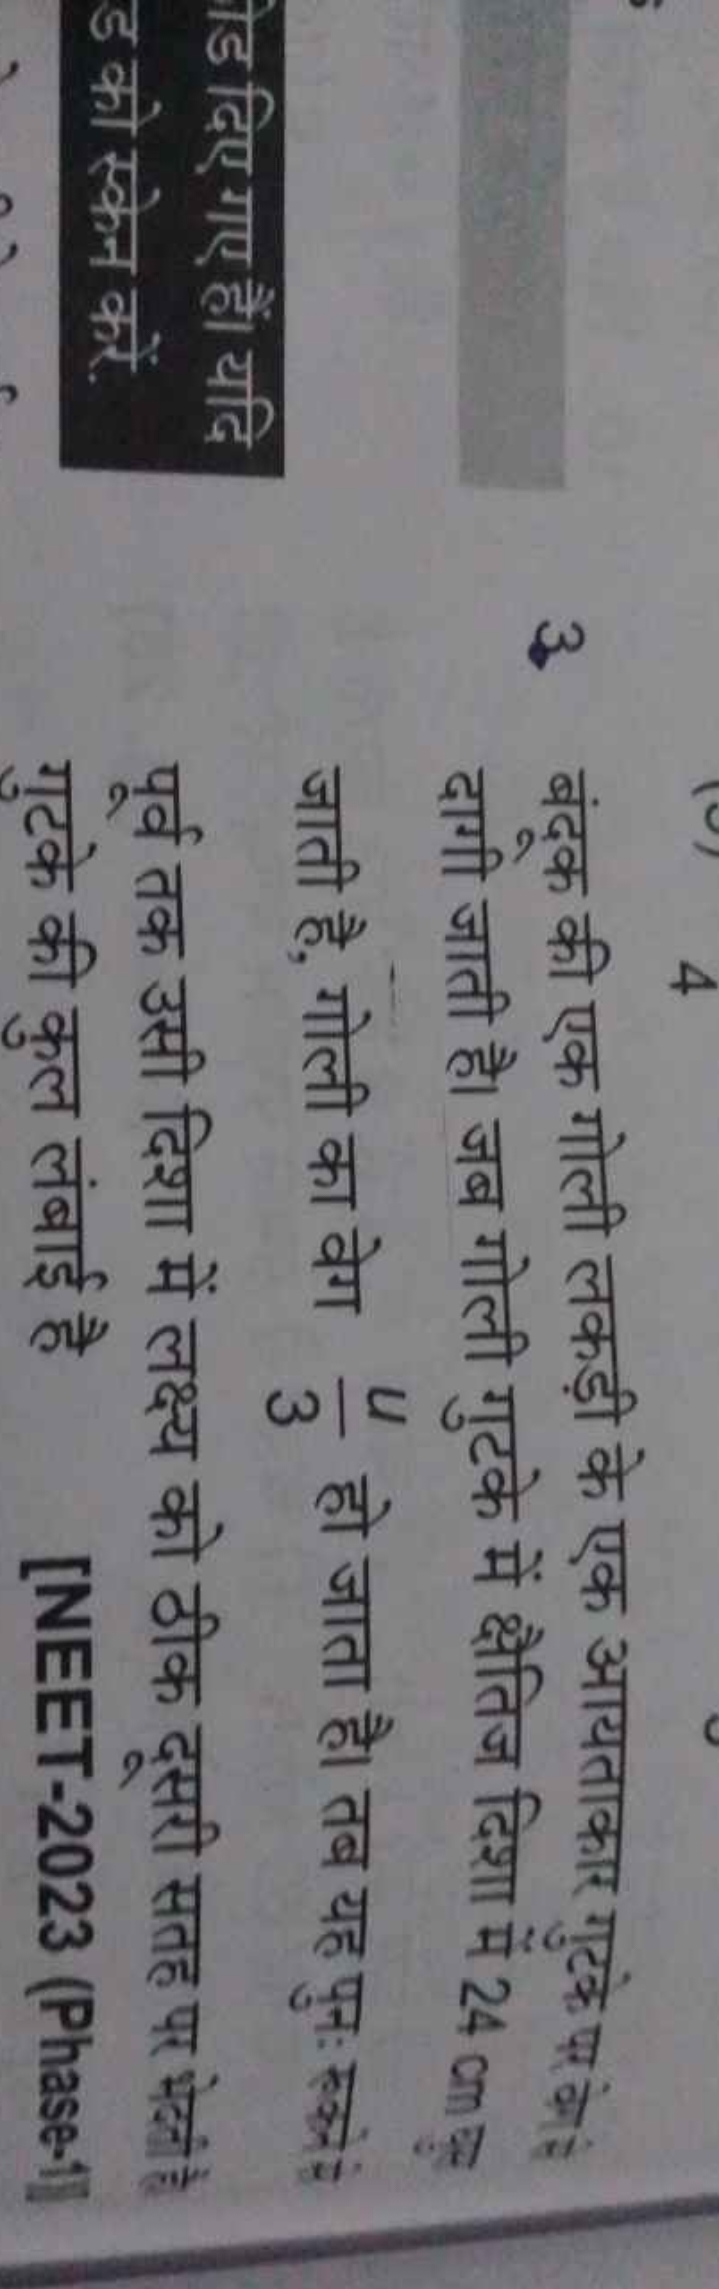 (b) 4
3. बंदूक की एक गोली लकड़ी के एक आयताकार गुटके पर वेग से
दागी जाती है। जब गोली गुटके में क्षैतिज दिशा में 24 cm
जाती है, गोली का वेग u/3 हो जाता है। तब यह पुनः रुकने से
पूर्व तक उसी दिशा में लक्ष्य को ठीक दूसरी सतह पर भेदती है
गुटके की कुल लंबाई है [NEET-2023 (Phase-1)]
दिए गए हैं। यदि
को स्केन करें.